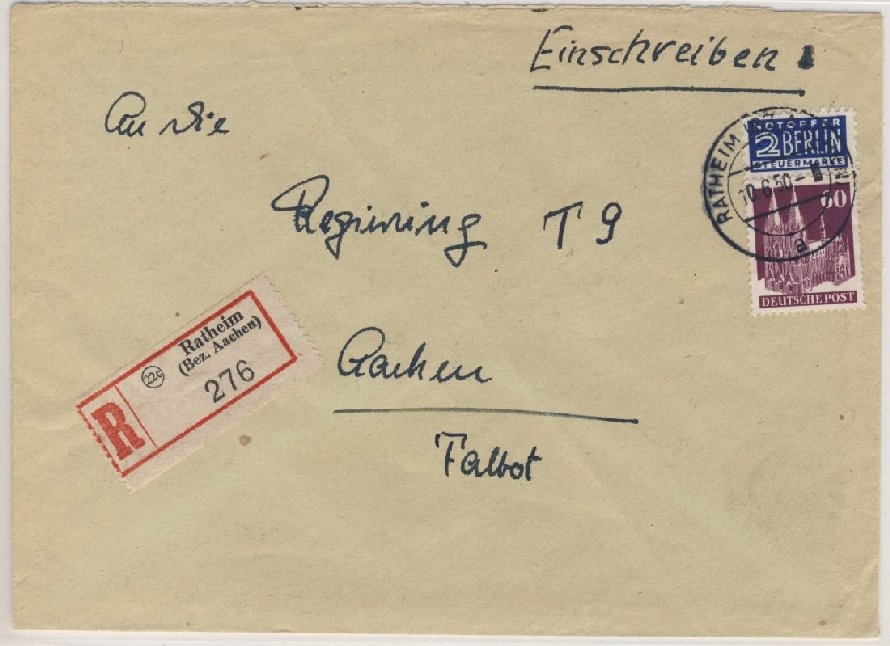 Einschreiben
An die
NOTOPFER
2 BERLIN
STEUERMARKE
RATHEIM
10.6.50
a
60
DEUTSCHE POST
Regierung T 9
Ratheim
(Bez. Aachen)
22c
276
R
Aachen
Talbot